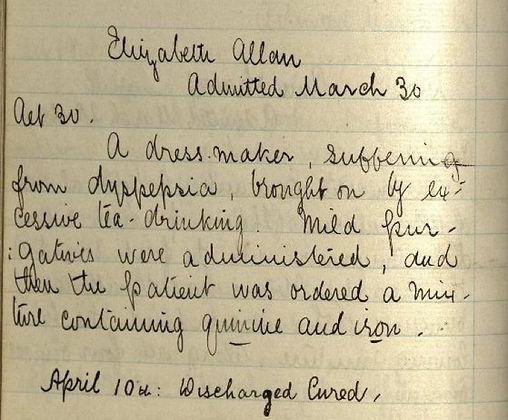 Elizabeth Allan
Admitted March 30
Aet 30.
A dress-maker, suffering
from dyspepsia, brought on by ex-
cessive tea-drinking. Mild pur-
:gatives were administered, and
then the patient was ordered a mix-
ture containing quinine and iron.
April 10th: Discharged Cured,